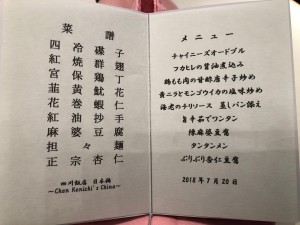 菜譜
四冷碟子
紅焼群翅
宮保鶏丁
韮黄魷花
花巻蝦仁
紅油抄手
麻婆豆腐
担々麺
正宗杏仁
四川飯店 日本橋
～Chen Kenichi's China～
メニュー
チャイニーズオードブル
フカヒレの醤油煮込み
鶏もも肉の甘酢唐辛子炒め
黄ニラとモンゴウイカの塩味炒め
海老のチリソース 蒸しパン添え
旨辛茹でワンタン
陳麻婆豆腐
タンタンメン
ぷりぷり杏仁豆腐
2018年7月20日